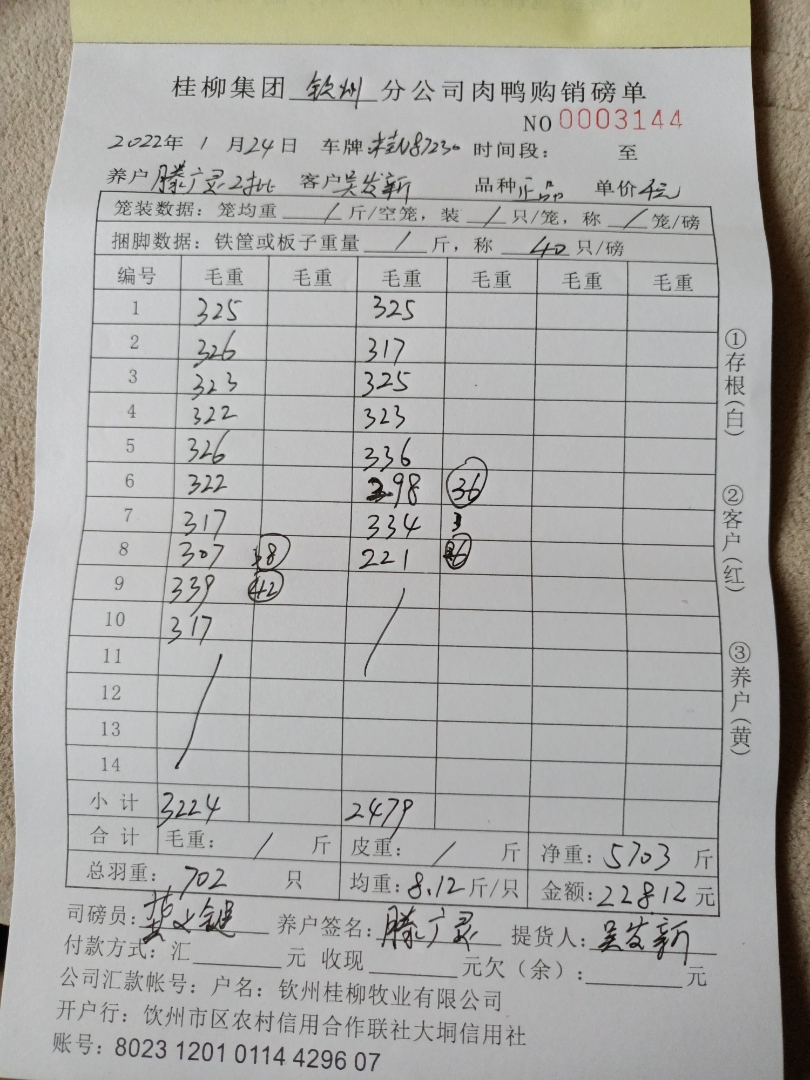 桂柳集团 钦州 分公司肉鸭购销磅单
NO 0003144
2022年 1 月 24 日 车牌 时间段: 至
养户 滕广灵2批 客户 吴发新 品种 正品 单价 4元
笼装数据: 笼均重 / 斤/空笼, 装 / 只/笼, 称 / 笼/磅
捆脚数据: 铁筐或板子重量 / 斤, 称 40 只/磅
编号 毛重 毛重 毛重 毛重 毛重 毛重
1 325 325
2 326 317
3 323 325
4 322 323
5 326 336
6 322 298 36
7 317 334
8 307 38 221
9 339 42 /
10 317
11 /
12
13
14
小计 3224 2479
合计 毛重: / 斤 皮重: / 斤 净重: 5703 斤
总羽重: 702 只 均重: 8.12 斤/只 金额: 22812 元
司磅员: 养户签名: 滕广灵 提货人: 吴发新
付款方式: 汇 元 收现 元欠(余): 元
公司汇款帐号: 户名: 钦州桂柳牧业有限公司
开户行: 钦州市区农村信用合作联社大垌信用社
账号: 8023 1201 0114 4296 07
①存根(白)
②客户(红)
③养户(黄)